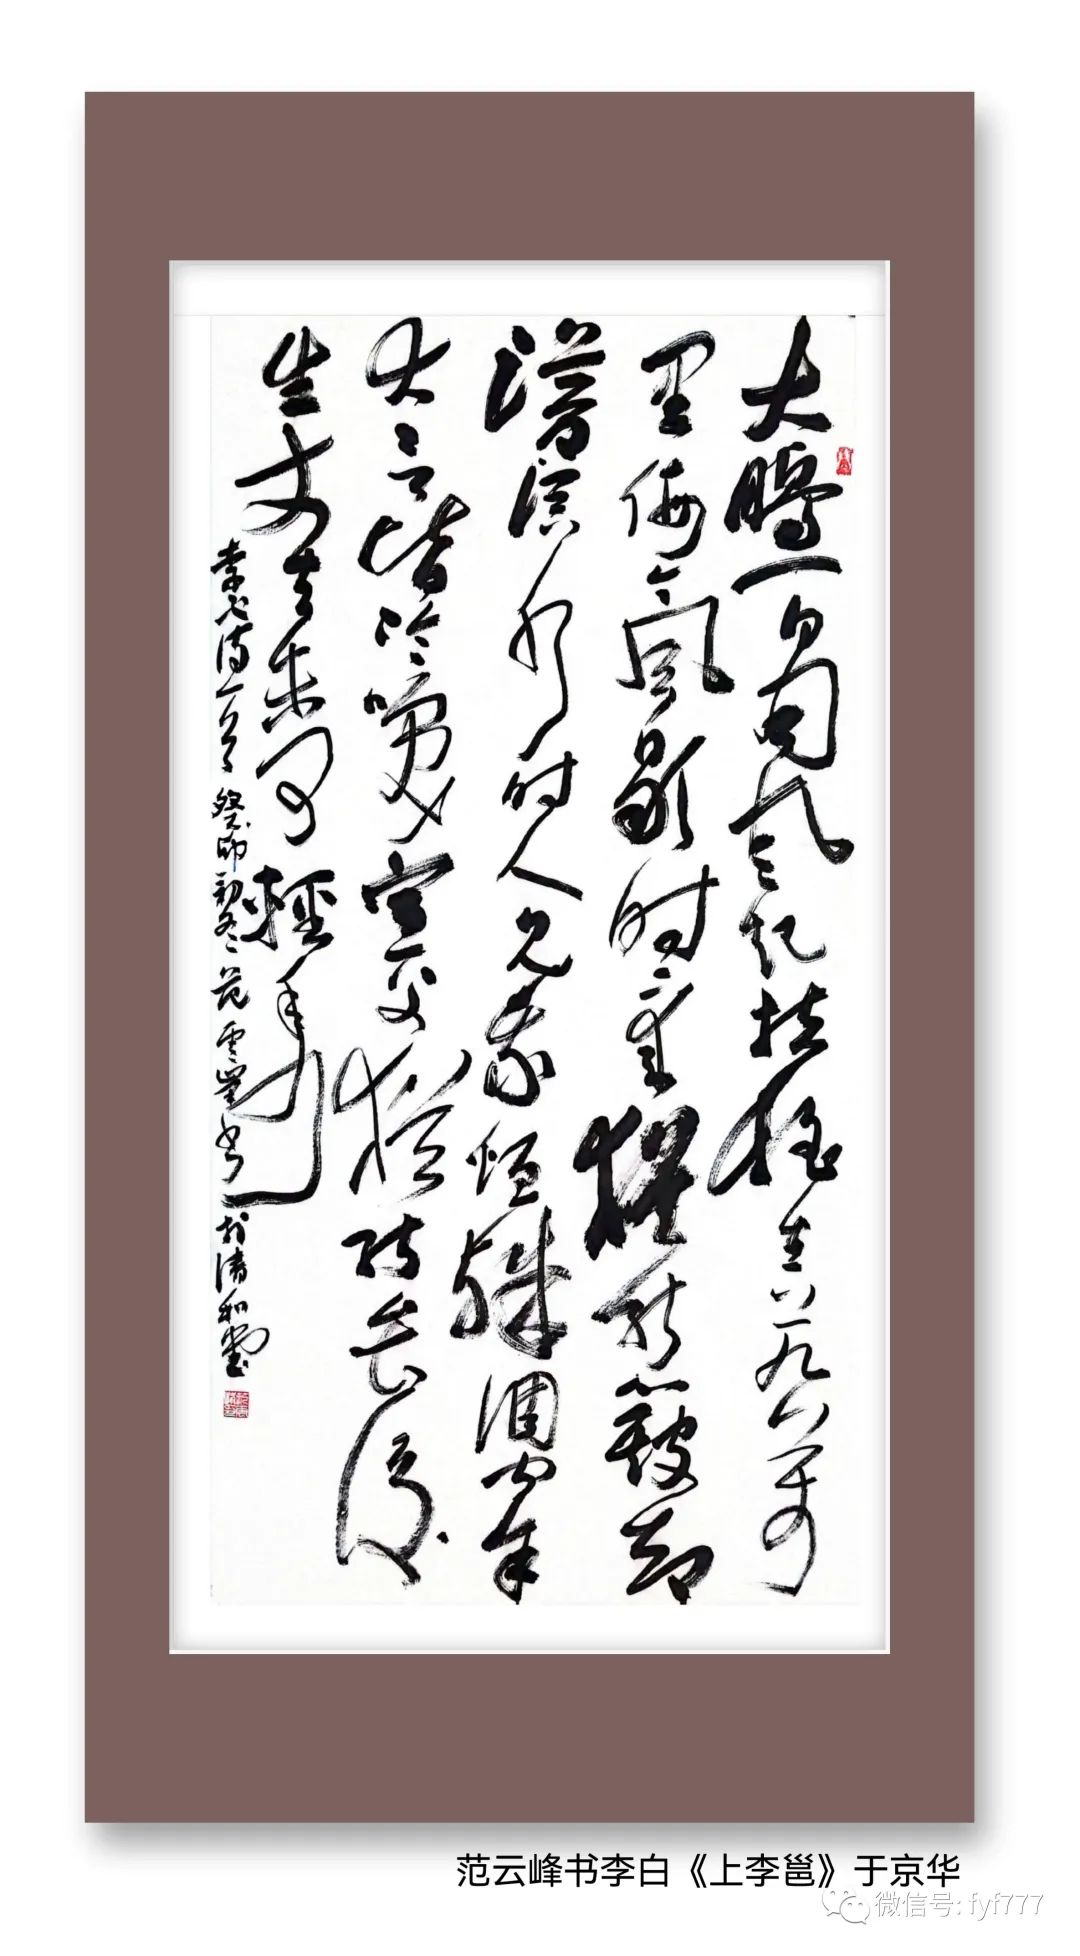 大鵬一日同风起扶摇直上九万
里假令風歇时来下猶能簸却
滄溟水时人见我恒殊调闻余
大言皆冷笑宣父猶能畏後
生丈夫未可輕年少
李白诗一首 癸卯初冬 范雲峯书於清和堂
范云峰书李白《上李邕》于京华
微信号: fyf777